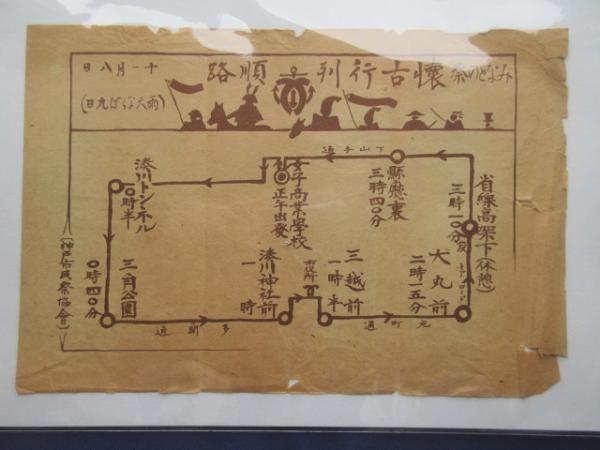 みなとの祭 懐古行列順路
十一月八日
(雨天ならば九日)
女子商業學校
正午出發
湊川トンネル
〇時半
三角公園
〇時四〇分
多聞通
湊川神社前
一時
市役所
三越前
一時半
元町通
大丸前
二時一五分
トアロード
省線高架下(休憩)
三時一〇分發
縣廳裏
三時四〇分
下山手通
(神戸市民祭協會)